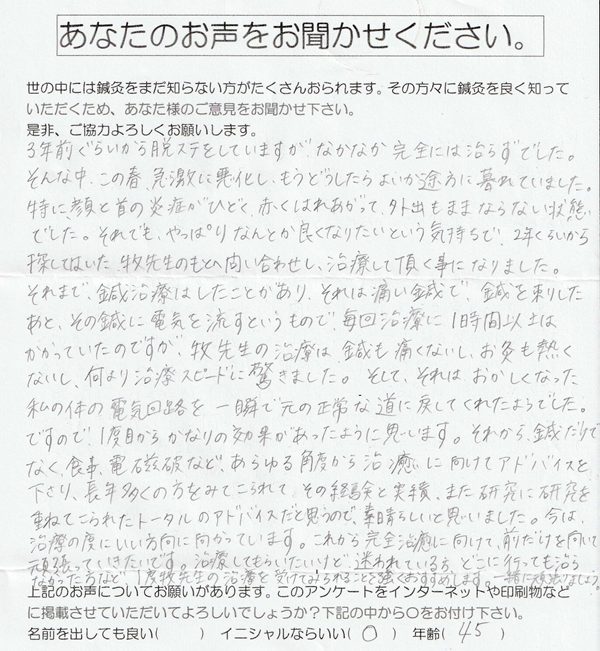 あなたのお声をお聞かせください。
世の中には鍼灸をまだ知らない方がたくさんおられます。その方々に鍼灸を良く知って
いただくため、あなた様のご意見をお聞かせ下さい。
是非、ご協力よろしくお願いします。
3年前ぐらいから脱ステをしていますが、なかなか完全には治らずでした。
そんな中、この春、急激に悪化し、もうどうしたらよいか途方に暮れていました。
特に、顔と首の炎症がひどく、赤くはれあがって、外出もままならない状態
でした。それでも、やっぱりなんとか良くなりたいという気持ちで、2年くらいから
探してはいた、牧先生のもとへ問い合わせし、治療して頂く事になりました。
それまで、鍼治療はしたことがあり、それは痛い鍼で、鍼を刺した
あと、その鍼に電気を流すというもので、毎回治療に1時間以上は
かかっていたのですが、牧先生の治療は、鍼も痛くないし、お灸も熱く
ないし、何より治療スピードに驚きました。そして、それはおかしくなった
私の体の電気回路を一瞬で元の正常な道に戻してくれたようでした。
ですので、1度目からかなりの効果があったように思います。それから、鍼だけで
なく、食事、電磁破など、あらゆる角度から治癒に向けてアドバイスを
下さり、長年多くの方をみてこられて、その経験と実績、また研究に研究を
重ねてこられたトータルのアドバイスだと思うので、素晴らしいと思いました。今は、
治療の度にいい方向に向かっています。これから完全治癒に向けて、前だけを向いて
頑張っていきたいです。治療してもらいたいけど、迷われている方、どこに行っても治ら
なかった方など、1度牧先生の治療を受けてみられることを強くおすすめします。一緒に頑張りましょう。
上記のお声についてお願いがあります。このアンケートをインターネットや印刷物など
に掲載させていただいてよろしいでしょうか？下記の中から〇をお付け下さい。
名前を出しても良い( ) イニシャルならいい( 〇 ) 年齢( 45 )